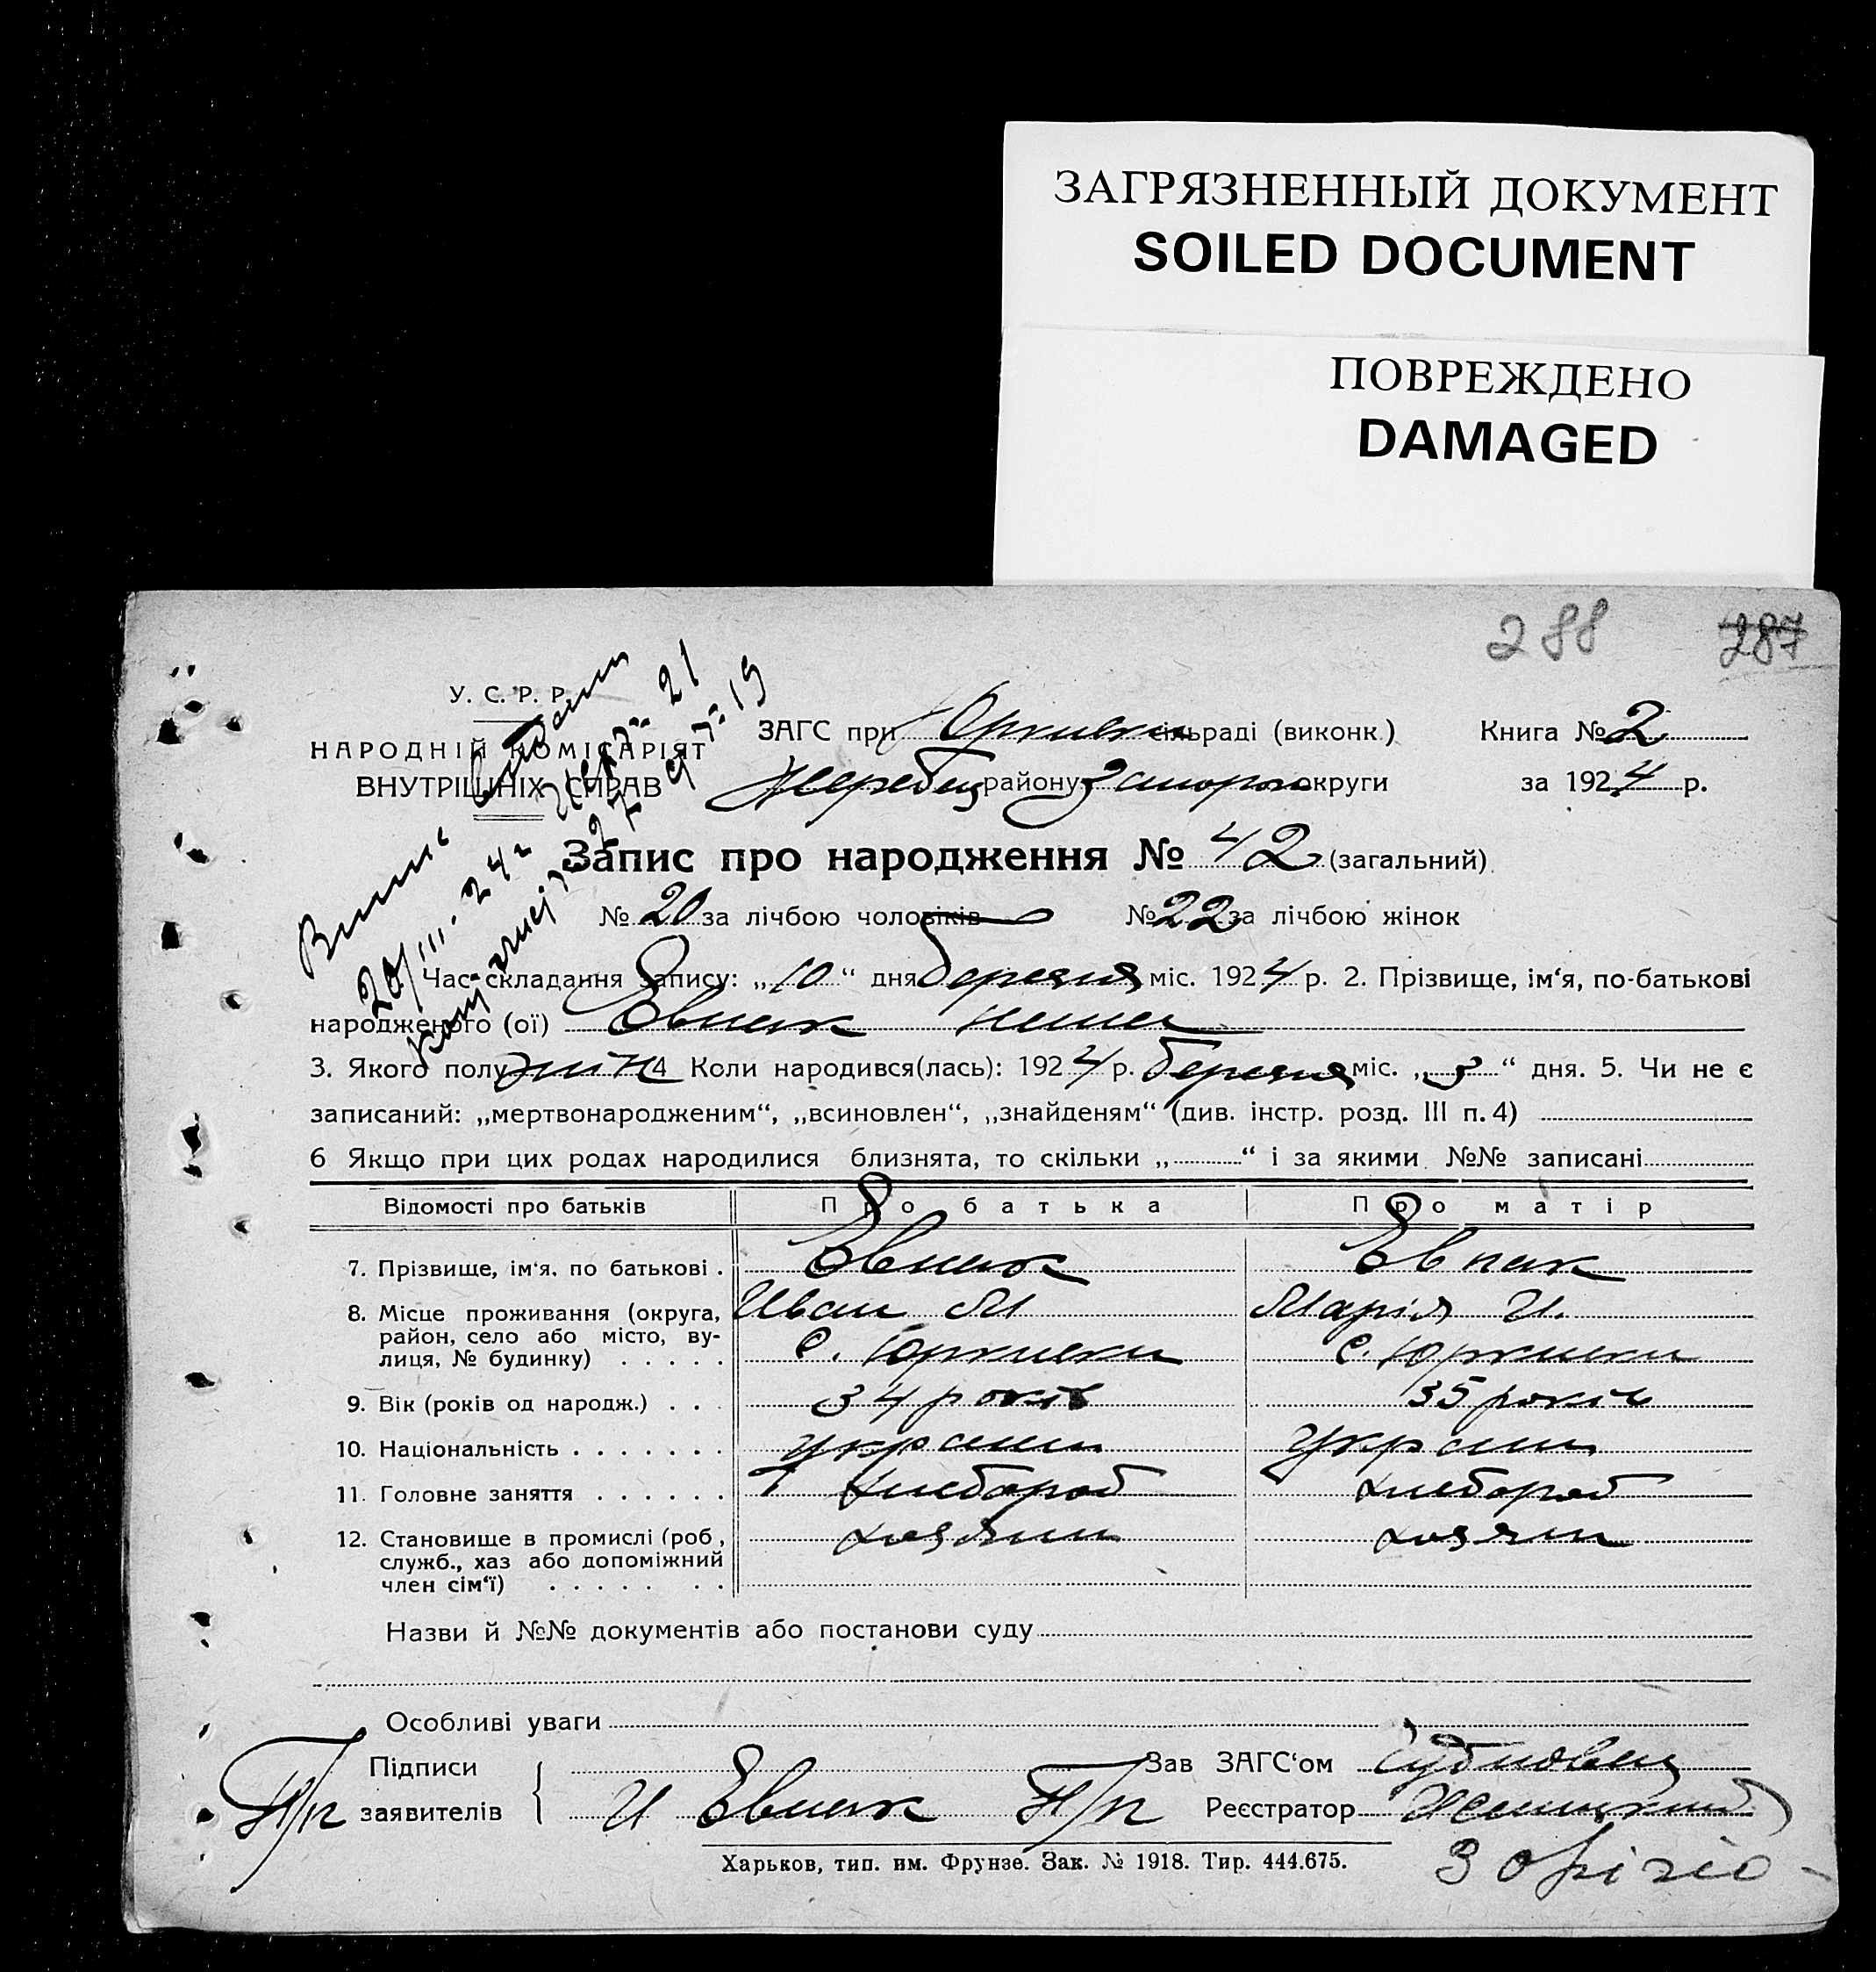 ЗАГРЯЗНЕННЫЙ ДОКУМЕНТ
SOILED DOCUMENT
ПОВРЕЖДЕНО
DAMAGED
288 287
У. С. Р. Р.
НАРОДНІЙ КОМІСАРІЯТ
ВНУТРІШНІХ СПРАВ
ЗАГС при сільраді (виконк.) Книга № 2
Жеребец району Запорож округи за 1924 р.
Запис про народження № 42 (загальний)
№ 20 за лічбою чоловіків № 22 за лічбою жінок
Час складання запису: „10“ дня березня міс. 1924 р. 2. Прізвище, ім‘я, по-батькові
народженого (ої) Евпак
3. Якого полу жін 4 Коли народився(лась): 1924 р. березня міс. „3“ дня. 5. Чи не є
записаний: „мертвонародженим“, „всиновлен“, „знайденям“ (див. інстр. розд. III п. 4)
6 Якщо при цих родах народилися близнята, то скільки „ “ і за якими №№ записані
Відомості про батьків Про батька Про матір
7. Прізвище, ім‘я, по батькові . Евпак Евпак
8. Місце проживання (округа, Иван М Марія И.
район, село або місто, ву-
лиця, № будинку) . . . . . с. Юркивки с. Юркивки
9. Вік (років од народж.) . . . 34 років 35 років
10. Національність . . . . . . . украин украин
11. Головне заняття . . . . . . хлебороб хлебороб
12. Становище в промислі (роб., хозяин хозяин
служб., хаз або допоміжний
член сім‘ї) . . . . . . .
Назви й №№ документів або постанови суду
Особливі уваги
Підписи Зав ЗАГС‘ом
П/п заявителів И Евпак П/п Реєстратор
Харьков, тип. им. Фрунзе. Зак. № 1918. Тир. 444.675.
З